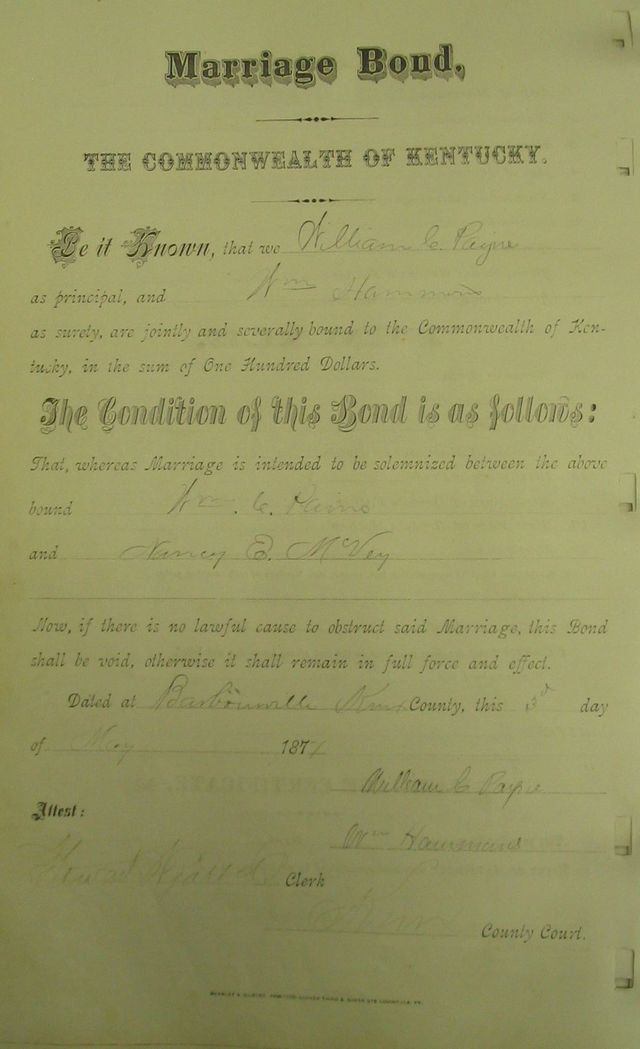 Marriage Bond,
THE COMMONWEALTH OF KENTUCKY.
Be it Known, that we William C. Payne
as principal, and Wm Hammons
as surety, are jointly and severally bound to the Commonwealth of Ken-
tucky, in the sum of One Hundred Dollars.
The Condition of this Bond is as follows:
That, whereas Marriage is intended to be solemnized between the above
bound Wm. C.
and Nancy E. McVey
Now, if there is no lawful cause to obstruct said Marriage, this Bond
shall be void, otherwise it shall remain in full force and effect.
Dated at Barbourville Knox County, this 3d day
of May 187
William C Payne
Attest:
Wm Hammons
Clerk
County Court.